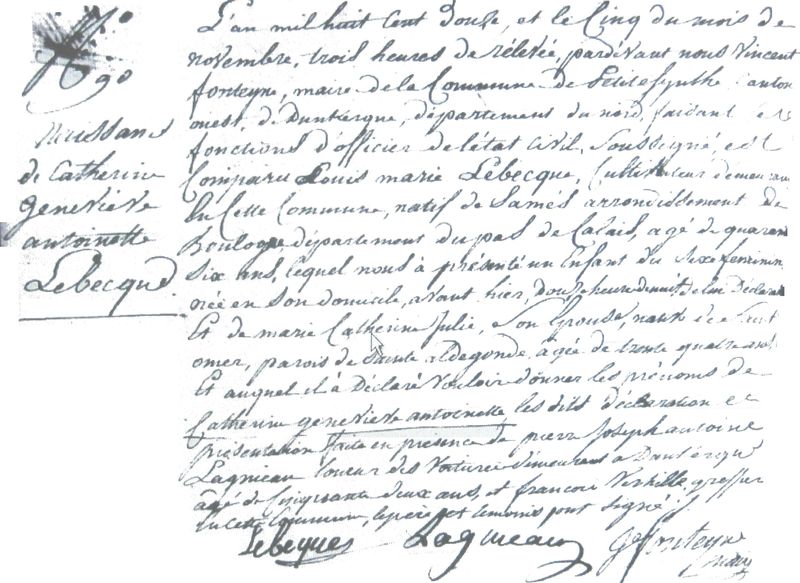 90
Naissance
de Catherine
geneviève
antoinette
Lebecque
L'an mil huit Cent douze, et le Cinq du mois de
novembre, trois heures de rélevée, pardevant nous Vincent
fonteyne, maire de la Commune de Petite Synthe, Canton
ouest, de Dunkerque, département du nord, faisant les
fonctions d'officier de l'état Civil, Soussigné, est
Comparu Louis marie Lebecque, Cultivateur demeurant
en Cette Commune, natif de Samés arrondissement de
Boulogne département du pas de Calais, agé de quarante
six ans, lequel nous à présenté un Enfant du Sexe féminin
née en Son domicile, avant hier, douze heure de nuit, de lui Déclarant
Et de marie Catherine Julie, Son Epouse, native de Saint
omer, parois de Sainte aldegonde, agée de trente quatre ans
Et auquel il à Déclaré vouloir donner les prénoms de
Catherine geneviève antoinette les dits déclaration et
présentation faite en présence de pierre Joseph antoine
Lagnieau Loueur des Voitures demeurant à Dunkerque
agé de Cinquante deux ans, et françois Verhille greffier
en cette Commune, le père et temoins ont signé
Lebecque Lagnieau fonteyne
maire